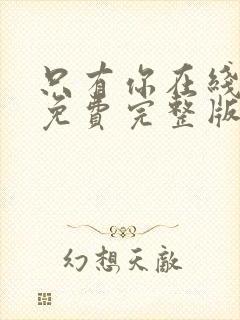 只有你在线
免费完整版
幻想天敵